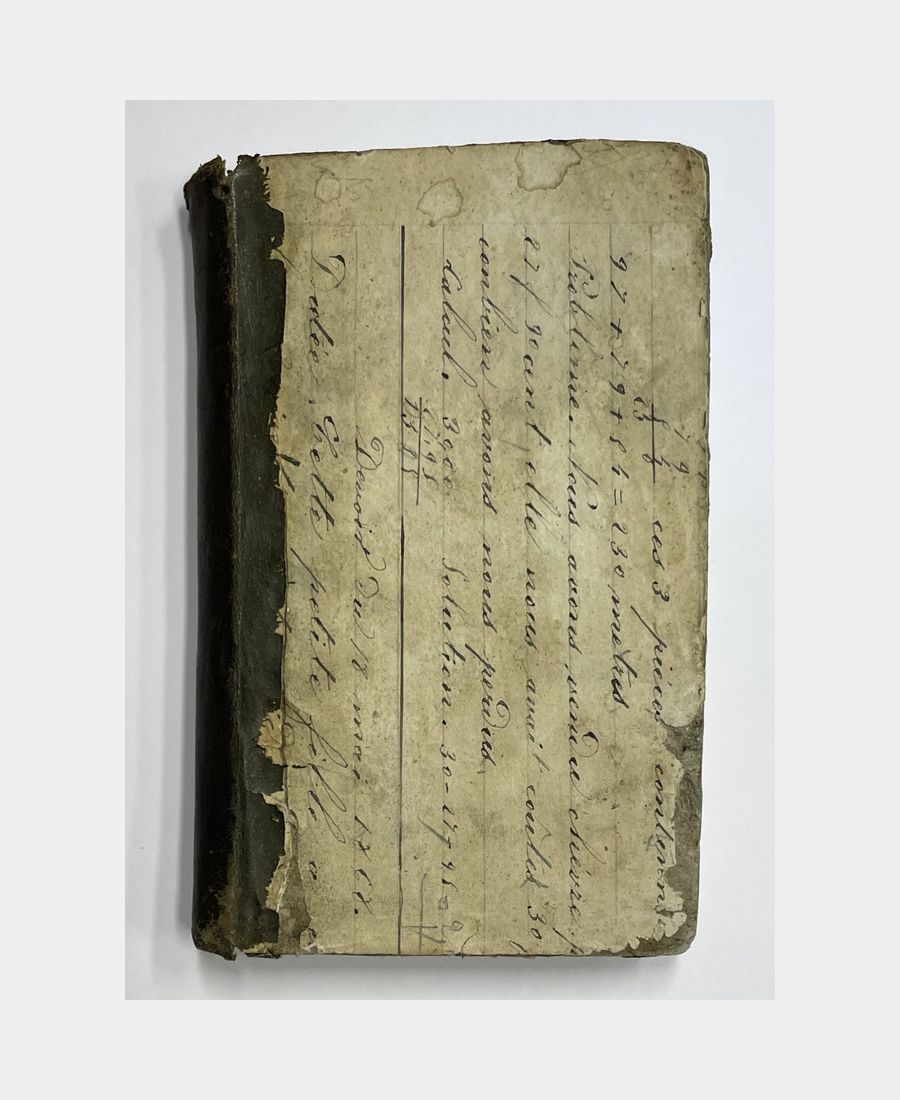 79
54
ces 3 pieces contienne
97 + 79 + 54 = 230 metres
Problème. Nous avons vendu chèvre p
27 f 90 cent, elle nous avait coutée 30 f
combien avons nous perdus
Calcul. 3000 Solution. 30 - 27 f 95 =
2795
Devoir du 18 mai 1868.
Dictée. Cette petite fille a